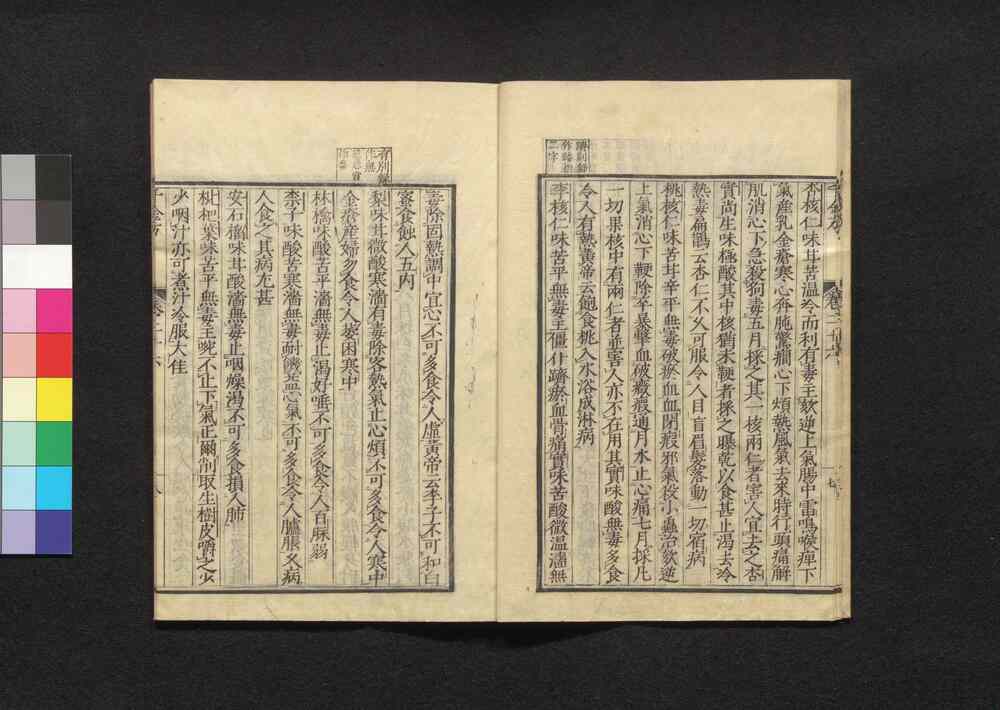 杏核仁味甘苦溫冷而利有毒主欬逆上氣腸中雷鳴喉痺下
氣產乳金瘡寒心奔豚驚癇心下煩熱風氣去來時行頭痛解
肌消心下急殺狗毒五月採之其一核兩仁者害人宜去之杏
實尚生味極酸其中核猶未鞕者採之曝乾以食甚止渴去冷
熱毒扁鵲云杏仁不可久服令人目盲眉髮落動一切宿病
桃核仁味苦甘辛平無毒破瘀血血閉瘕邪氣殺小蟲治欬逆
上氣消心下鞕除卒暴擊血破癥瘕通月水止心痛七月採凡
一切果核中有兩仁者並害人亦不在用其實味酸無毒多食
令人有熱黃帝云飽食桃入水浴成淋病
李核仁味苦平無毒主僵仆躋瘀血骨痛實味苦酸微溫濇無
毒除固熱調中宜心不可多食令人虛黃帝云李子不可和白
蜜食蝕人五內
梨味甘微酸寒濇有毒除客熱氣止心煩不可多食令人寒中
金瘡產婦勿食令人萎困寒中
林檎味酸苦平濇無毒止渴好唾不可多食令人百脈弱
柰子味酸苦寒濇無毒耐飢益心氣不可多食令人臚脹久病
人食之其病尤甚
安石榴味甘酸濇無毒止咽燥渴不可多食損人肺
枇杷葉味苦平無毒主啘不止下氣正爾削取生樹皮嚼之少
少咽汁亦可煮汁冷服大佳